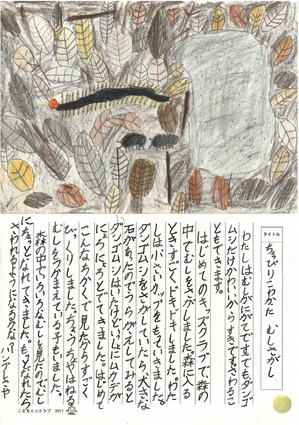 タイトル
ちょっぴりこわかった むしさがし
わたしはむしがにがてです。でもダンゴ
ムシだけかわいいからすきです。さわるこ
ともできます。
はじめてのキッズクラブで、森の
中でむしをさがしました。森に入る
ときすごくドキドキしました。わた
しは小さいカップをもっていきました。
ダンゴムシをさがしていたら、大きな
石があったのでうらがえしてみると
ダンゴムシはいたけど、いっしょにムカデが
にょろにょろとでてきました。はじめて
こんなちかくで見たからすごく
びっくりしました。
むしをつかまえている子もいました。
森の中でいろいろなむしを見たのでむし
にちょっとなれてきました。もっとなれたら
さわれるようになるかな。
こどもエコクラブ 2017